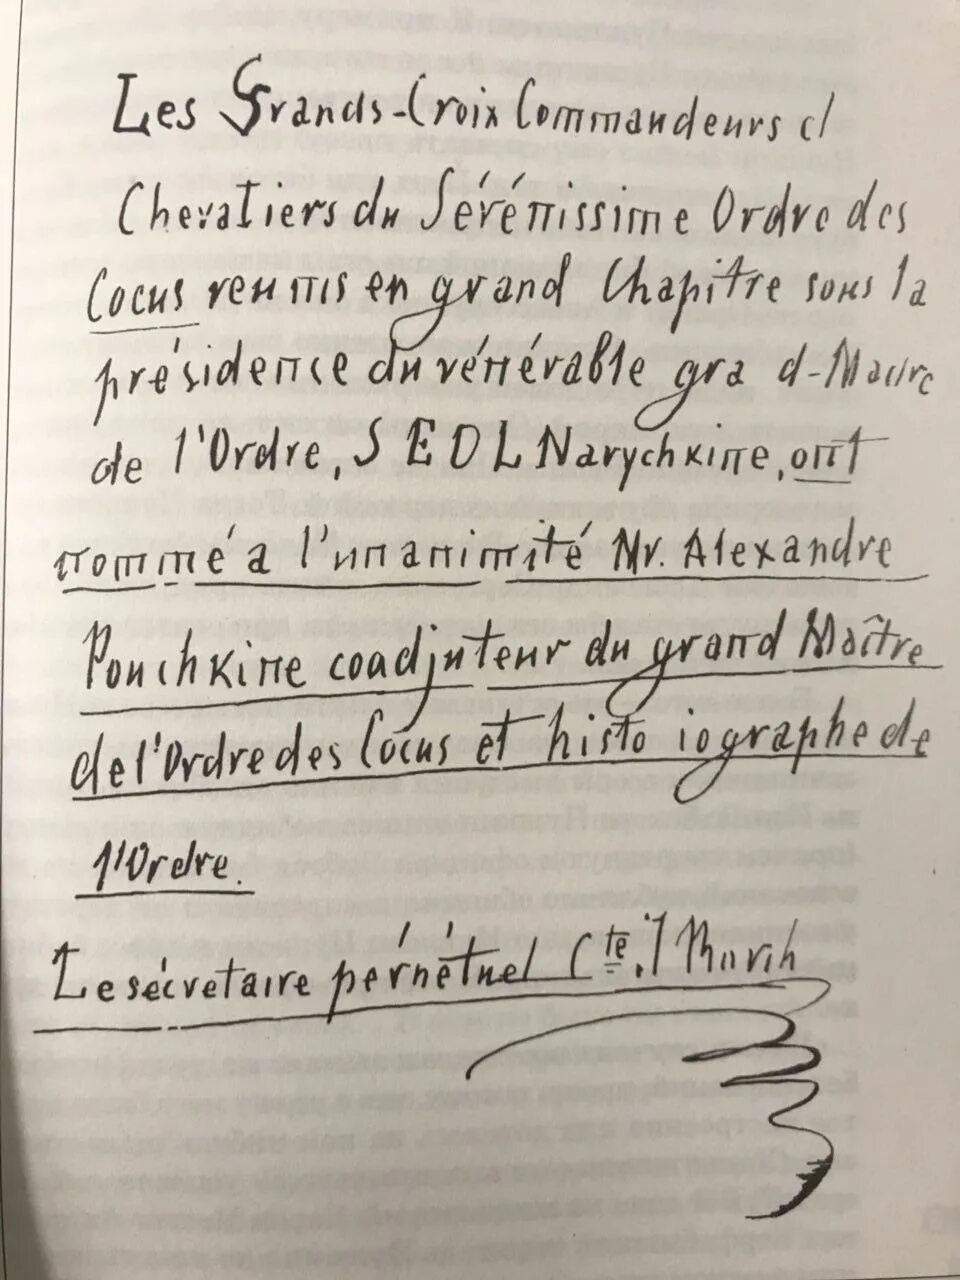 Les Grands-Croix Commandeurs et
Chevaliers du Sérénissime Ordre des
Cocus reunis en grand Chapitre sous la
présidence du vénérable gra d-Maure
de l'Ordre, S E D L Narychkine, ont
nommé a l'unanimité Mr. Alexandre
Pouchkine coadjuteur du grand Maître
de l'Ordre des Cocus et histo iographe de
l'Ordre.
Le sécretaire pernétuel Cte. I